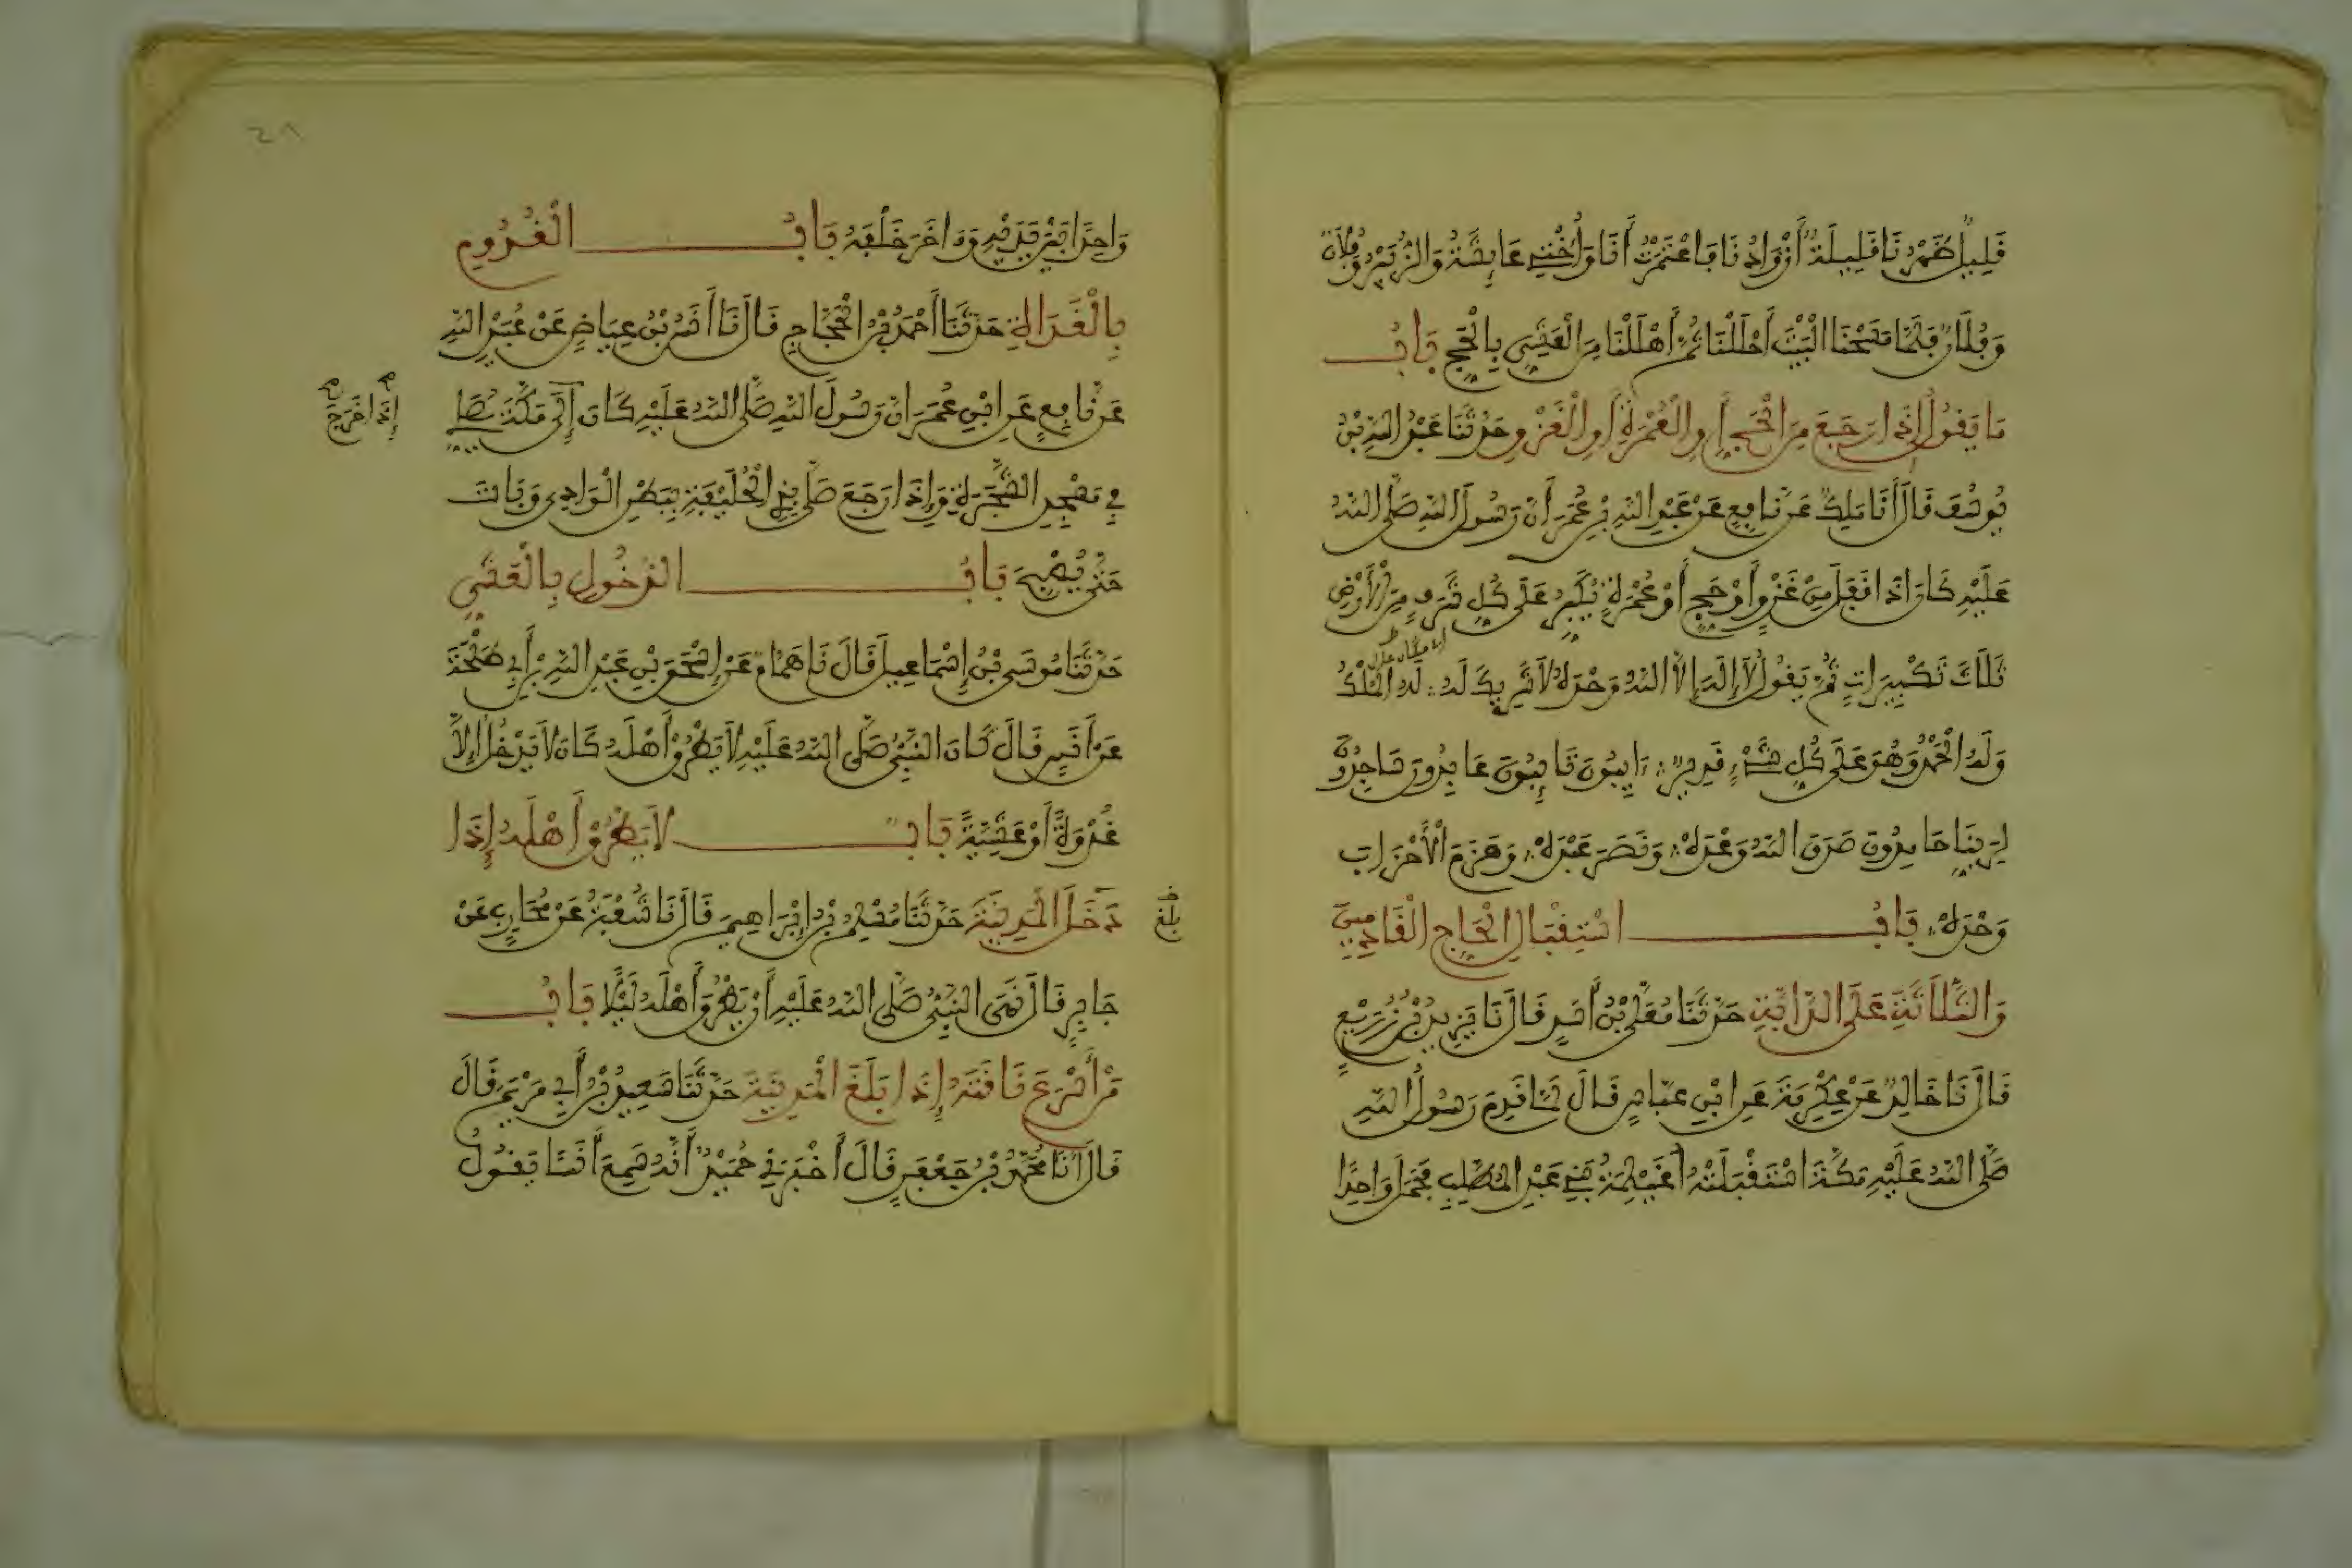 قَلِيلٌ ظَهْرُنَا قَلِيلَةٌ أَزْوَادُنَا فَاعْتَمَرْتُ أَنَا وَأُخْتِي عَائِشَةُ وَالزُّبَيْرُ وَفُلَانٌ
وَفُلَانٌ فَلَمَّا مَسَحْنَا الْبَيْتَ أَحْلَلْنَا ثُمَّ أَهْلَلْنَا مِنَ الْعَشِيِّ بِالْحَجِّ بَابُ
مَا يَقُولُ إِذَا رَجَعَ مِنَ الْحَجِّ أَوِ الْعُمْرَةِ أَوِ الْغَزْوِ حَدَّثَنَا عَبْدُ اللَّهِ بْنُ
يُوسُفَ قَالَ أَنَا مَلِكٌ عَنْ نَافِعٍ عَنْ عَبْدِ اللَّهِ بْنِ عُمَرَ أَنَّ رَسُولَ اللَّهِ صَلَّى اللَّهُ
عَلَيْهِ كَانَ إِذَا قَفَلَ مِنْ غَزْوٍ أَوْ حَجٍّ أَوْ عُمْرَةٍ يُكَبِّرُ عَلَى كُلِّ شَرَفٍ مِنَ الْأَرْضِ
ثَلَاثَ تَكْبِيرَاتٍ ثُمَّ يَقُولُ لَا إِلَهَ إِلَّا اللَّهُ وَحْدَهُ لَا شَرِيكَ لَهُ لَهُ الْمُلْكُ
وَلَهُ الْحَمْدُ وَهُوَ عَلَى كُلِّ شَيْءٍ قَدِيرٌ ءَايِبُونَ تَائِبُونَ عَابِدُونَ سَاجِدُونَ
لِرَبِّنَا حَامِدُونَ صَدَقَ اللَّهُ وَعْدَهُ وَنَصَرَ عَبْدَهُ وَهَزَمَ الْأَحْزَابَ
وَحْدَهُ بَابُ اسْتِقْبَالِ الْحَاجِّ الْقَادِمِينَ
وَالثَّلَاثَةِ عَلَى الدَّابَّةِ حَدَّثَنَا مُعَلَّى بْنُ أَسَدٍ قَالَ نَا يَزِيدُ بْنُ زُرَيْعٍ
قَالَ نَا خَالِدٌ عَنْ عِكْرِمَةَ عَنِ ابْنِ عَبَّاسٍ قَالَ لَمَّا قَدِمَ رَسُولُ اللَّهِ
صَلَّى اللَّهُ عَلَيْهِ مَكَّةَ اسْتَقْبَلَتْهُ أُغَيْلِمَةُ بَنِي عَبْدِ الْمُطَّلِبِ فَحَمَلَ وَاحِدًا
وَاحِدًا بَيْنَ يَدَيْهِ وَءَاخَرَ خَلْفَهُ بَابُ الْقُدُومِ
بِالْغَدَاةِ حَدَّثَنَا أَحْمَدُ بْنُ الْحَجَّاجِ قَالَ نَا أَنَسُ بْنُ عِيَاضٍ عَنْ عُبَيْدِ اللَّهِ
عَنْ نَافِعٍ عَنِ ابْنِ عُمَرَ أَنَّ رَسُولَ اللَّهِ صَلَّى اللَّهُ عَلَيْهِ كَانَ إِلَى مَكَّةَ يُصَلِّي
إِذَا خَرَجَ
فِي مَسْجِدِ الشَّجَرَةِ وَإِذَا رَجَعَ صَلَّى بِذِي الْحُلَيْفَةِ بِبَطْنِ الْوَادِي وَبَاتَ
حَتَّى يُصْبِحَ بَابُ الدُّخُولِ بِالْعَشِيِّ
حَدَّثَنَا مُوسَى بْنُ إِسْمَاعِيلَ قَالَ نَا هَمَّامٌ عَنْ إِسْحَقَ بْنِ عَبْدِ اللَّهِ بْنِ أَبِي طَلْحَةَ
عَنْ أَنَسٍ قَالَ كَانَ النَّبِيُّ صَلَّى اللَّهُ عَلَيْهِ لَا يَطْرُقُ أَهْلَهُ كَانَ لَا يَدْخُلُ إِلَّا
غُدْوَةً أَوْ عَشِيَّةً بَابٌ لَا يَطْرُقْ أَهْلَهُ إِذَا
دَخَلَ الْمَدِينَةَ حَدَّثَنَا مُسْلِمُ بْنُ إِبْرَاهِيمَ قَالَ نَا شُعْبَةُ عَنْ مُحَارِبٍ عَنْ
بلغ
جَابِرٍ قَالَ نَهَى النَّبِيُّ صَلَّى اللَّهُ عَلَيْهِ أَنْ يَطْرُقَ أَهْلَهُ لَيْلًا بَابُ
مَنْ أَسْرَعَ نَاقَتَهُ إِذَا بَلَغَ الْمَدِينَةَ حَدَّثَنَا سَعِيدُ بْنُ أَبِي مَرْيَمَ قَالَ
قَالَ أَنَا مُحَمَّدُ بْنُ جَعْفَرٍ قَالَ أَخْبَرَنِي حُمَيْدٌ أَنَّهُ سَمِعَ أَنَسًا يَقُولُ